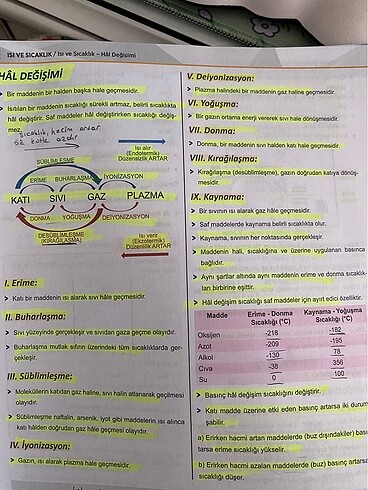 ISI VE SICAKLIK / Isı ve Sıcaklık – Hâl Değişimi
HÂL DEĞİŞİMİ
Bir maddenin bir halden başka hale geçmesidir.
Isıtılan bir maddenin sıcaklığı sürekli artmaz, belirli sıcaklıkta
hâl değiştirir. Saf maddeler hâl değiştirirken sıcaklığı değiş-
mez.
sıcaklık, hacim artar
öz kütle azalır
Isı alır
(Endotermik)
Düzensizlik ARTAR
SÜBLİMLEŞME
ERİME BUHARLAŞMA İYONİZASYON
KATI SIVI GAZ PLAZMA
DONMA YOĞUŞMA DEİYONİZASYON
DESÜBLİMLEŞME
(KIRAĞILAŞMA)
Isı verir
(Ekzotermik)
Düzenlilik ARTAR
I. Erime:
Katı bir maddenin ısı alarak sıvı hâle geçmesidir.
II. Buharlaşma:
Sıvı yüzeyinde gerçekleşir ve sıvıdan gaza geçme olayıdır.
Buharlaşma mutlak sıfırın üzerindeki tüm sıcaklıklarda ger-
çekleşir.
III. Süblimleşme:
Moleküllerin katıdan gaz haline, sıvı halin atlanarak geçilmesi
olayıdır.
Süblimleşme naftalin, arsenik, iyot gibi maddelerin ısı alınca
katı hâlden doğrudan gaz hâle geçmesi olayıdır.
IV. İyonizasyon:
Gazın, ısı alarak plazma hale geçmesidir.
V. Deiyonizasyon:
Plazma halindeki bir maddenin gaz haline geçmesidir.
VI. Yoğuşma:
Bir gazın ortama enerji vererek sıvı hale dönüşmesidir.
VII. Donma:
Donma, bir maddenin sıvı halden katı hale geçmesidir.
VIII. Kırağılaşma:
Kırağılaşma (desüblimleşme), gazın doğrudan katıya dönüş-
mesidir.
IX. Kaynama:
Bir sıvının ısı alarak gaz hâle geçmesidir.
Saf maddelerde kaynama belirli sıcaklıkta olur.
Kaynama, sıvının her noktasında gerçekleşir.
Maddenin hali, sıcaklığına ve üzerine uygulanan basınca
bağlıdır.
Aynı şartlar altında aynı maddenin erime ve donma sıcaklık-
ları birbirine eşittir.
Hâl değiştirme sıcaklığı saf maddeler için ayırt edici özelliktir.
Madde Erime - Donma Sıcaklığı (°C) Kaynama - Yoğuşma Sıcaklığı (°C)
Oksijen -218 -182
Azot -209 -195
Alkol -130 78
Cıva -38 356
Su 0 100
Basınç hâl değişim sıcaklığını değiştirir.
Katı madde üzerine etki eden basınç artarsa iki durum
şabilir.
a) Erirken hacmi artan maddelerde (buz dışındakiler) bas
tarsa erime sıcaklığı yükselir.
b) Erirken hacmi azalan maddelerde (buz) basınç artarsa
sıcaklığı düşer.